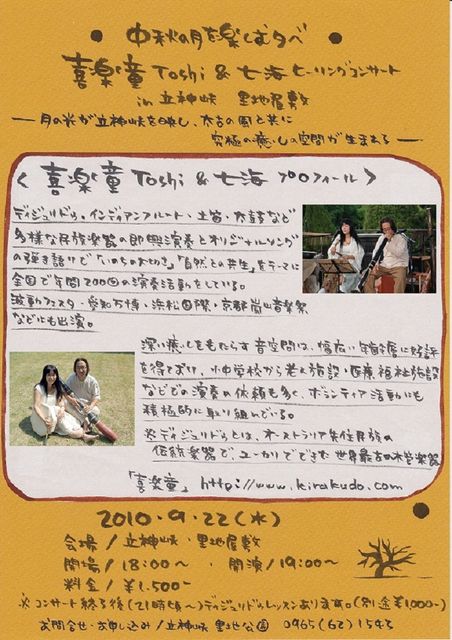 中秋の月を楽しむ夕べ
喜楽童Toshi & 七海 ヒーリングコンサート
in 立神峡 里地屋敷
―月の光が立神峡を映し、太古の風と共に
究極の癒しの空間が生まれる―
〈 喜楽童 Toshi & 七海 プロフィール 〉
ディジュリドゥ、インディアンフルート・土笛・太鼓など
多様な民族楽器の即興演奏とオリジナルソング
の弾き語りで「いのちの大切さ」「自然との共生」をテーマに
全国で年間200回の演奏活動をしている。
波動フェスタ・愛知万博・浜松国際・京都嵐山音楽祭
などにも出演。
深い癒しをもたらす音空間は、幅広い年齢層に好評
を得ており、小中学校から老人施設・医療福祉施設
などでの演奏の依頼も多く、ボランティア活動にも
積極的に取り組んでいる。
※ディジュリドゥとは、オーストラリア先住民族の
伝統楽器で、ユーカリでできた世界最古の木管楽器
「喜楽童」 http://www.kirakudo.com
2010・9・22(水)
会場 / 立神峡・里地屋敷
開場 / 18:00〜 ・ 開演 / 19:00〜
料金 / ¥1,500-
※コンサート終了後(21時頃〜)ディジュリドゥレッスンあります。(別途¥1,000-)
お問合せ・お申し込み / 立神峡 里地公園 0965(62)1543